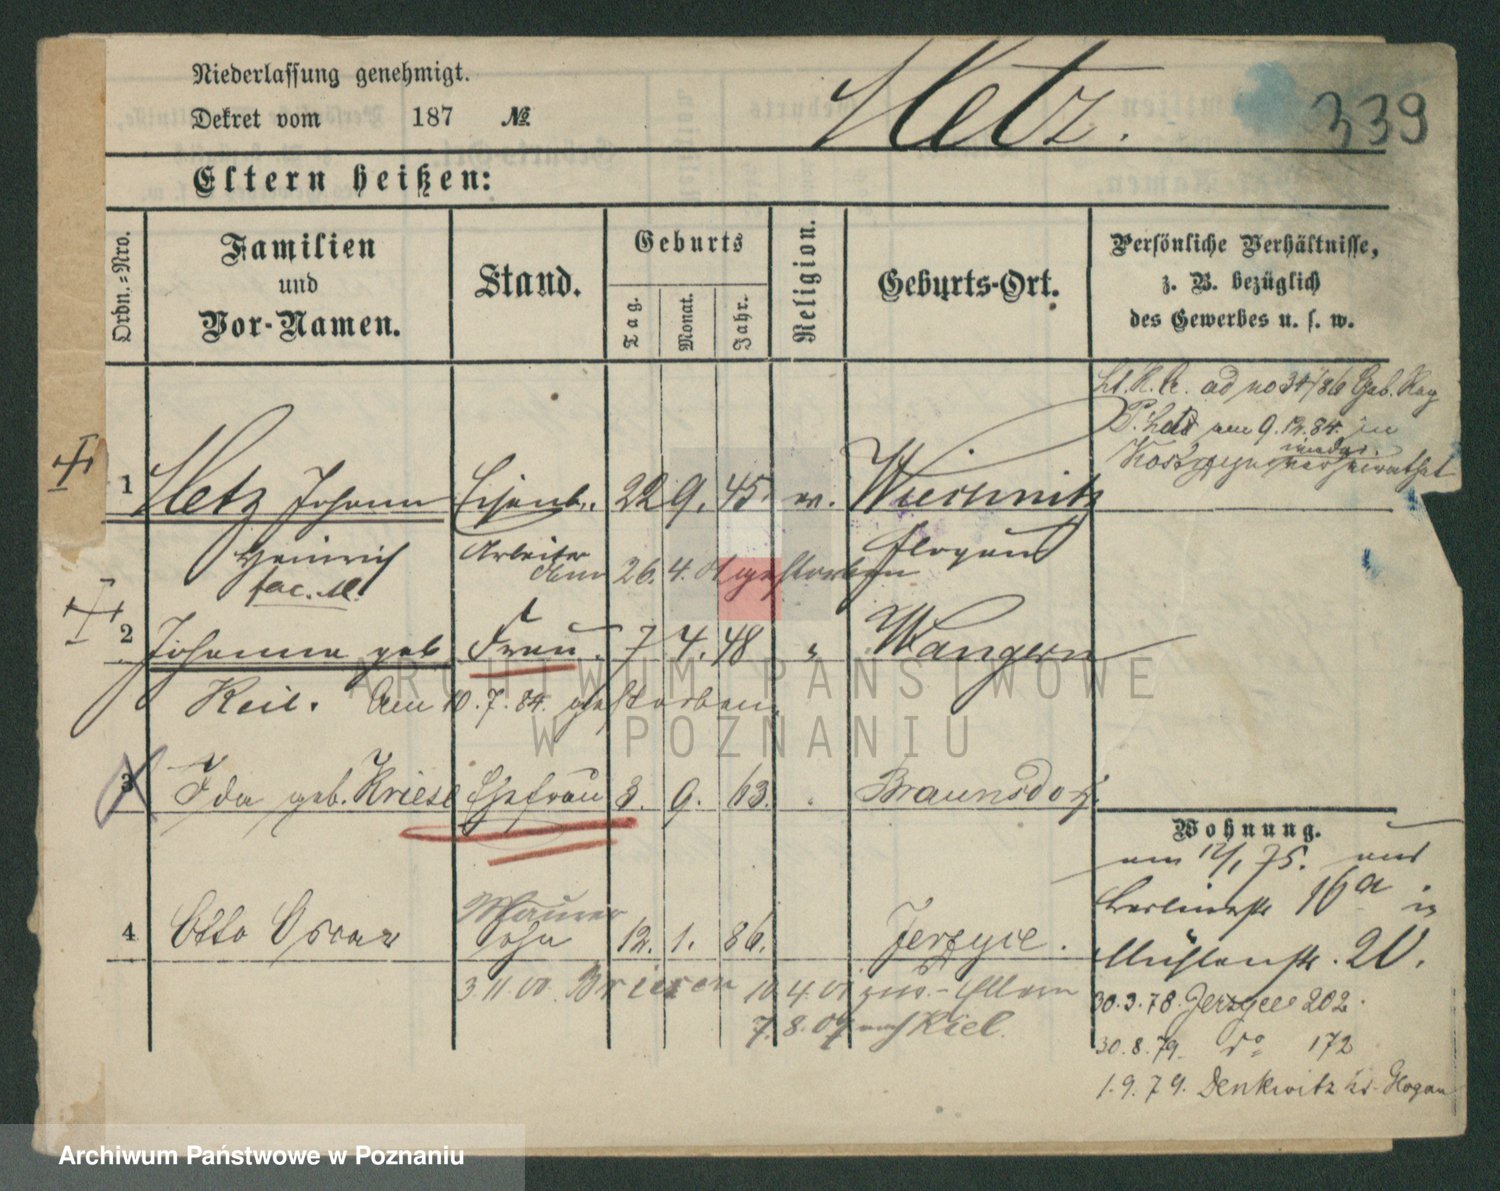 Niederlassung genehmigt.
Dekret vom 187 №
Metz.
339
Eltern heißen:
Ordn.-Nro.
Familien
und
Vor-Namen.
Stand.
Geburts
Tag.
Monat.
Jahr.
Religion.
Geburts-Ort.
Persönliche Verhältnisse,
z. B. bezüglich
des Gewerbes u. s. w.
ad no 34/86 Geb. Reg
am 9.12.84. in
wieder
verheirathet
1 Metz Johann Eisenb. 22 9. 45. ev. Wiersewitz
Heinrich Arbeiter Glogau
26. 4. gestorben
2 Johanna geb Frau. 7 4. 48 " Wangern
Keil. Am 10.7.84. gestorben
3 Ida geb. Kriese Ehefrau 3. 9. 63. Braunsdorf.
Wohnung.
am 12/1 75. aus
Berlinerstr 16a in
4 Otto Oscar Maurer
Sohn 12. 1. 86. Jerzyce.
Mühlenstr. 20.
3 11 00. Briesen 10.4.01 zur. Eltern
30.3.78. Jerzyce 202.
7.8.04 nach Kiel.
30.8.79. do 172
1.9.79. Denkwitz Kr. Glogau
ARCHIWUM PAŃSTWOWE
W POZNANIU
Archiwum Państwowe w Poznaniu